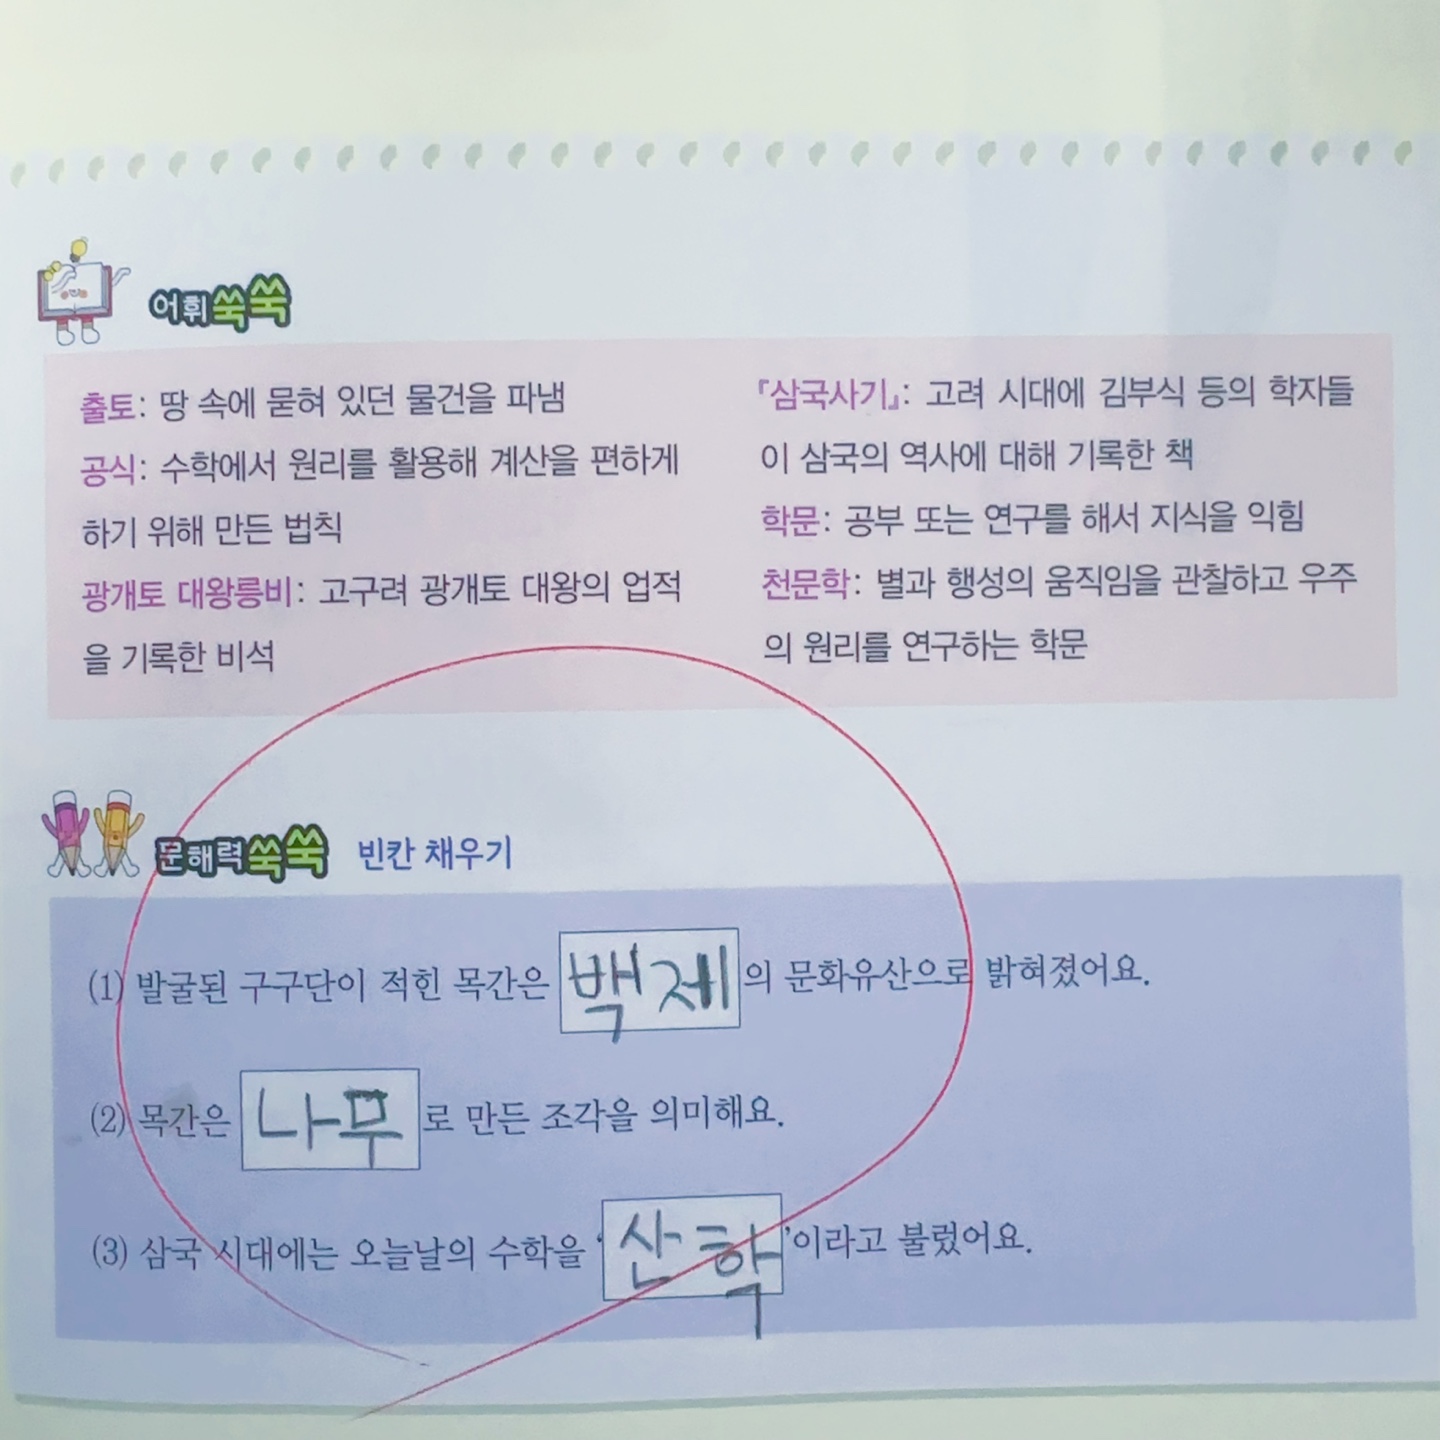 어휘쑥쑥
출토: 땅 속에 묻혀 있던 물건을 파냄
공식: 수학에서 원리를 활용해 계산을 편하게
하기 위해 만든 법칙
광개토 대왕릉비: 고구려 광개토 대왕의 업적
을 기록한 비석
『삼국사기』: 고려 시대에 김부식 등의 학자들
이 삼국의 역사에 대해 기록한 책
학문: 공부 또는 연구를 해서 지식을 익힘
천문학: 별과 행성의 움직임을 관찰하고 우주
의 원리를 연구하는 학문
문해력쑥쑥 빈칸 채우기
(1) 발굴된 구구단이 적힌 목간은 백제의 문화유산으로 밝혀졌어요.
(2) 목간은 나무로 만든 조각을 의미해요.
(3) 삼국 시대에는 오늘날의 수학을 '산학'이라고 불렀어요.